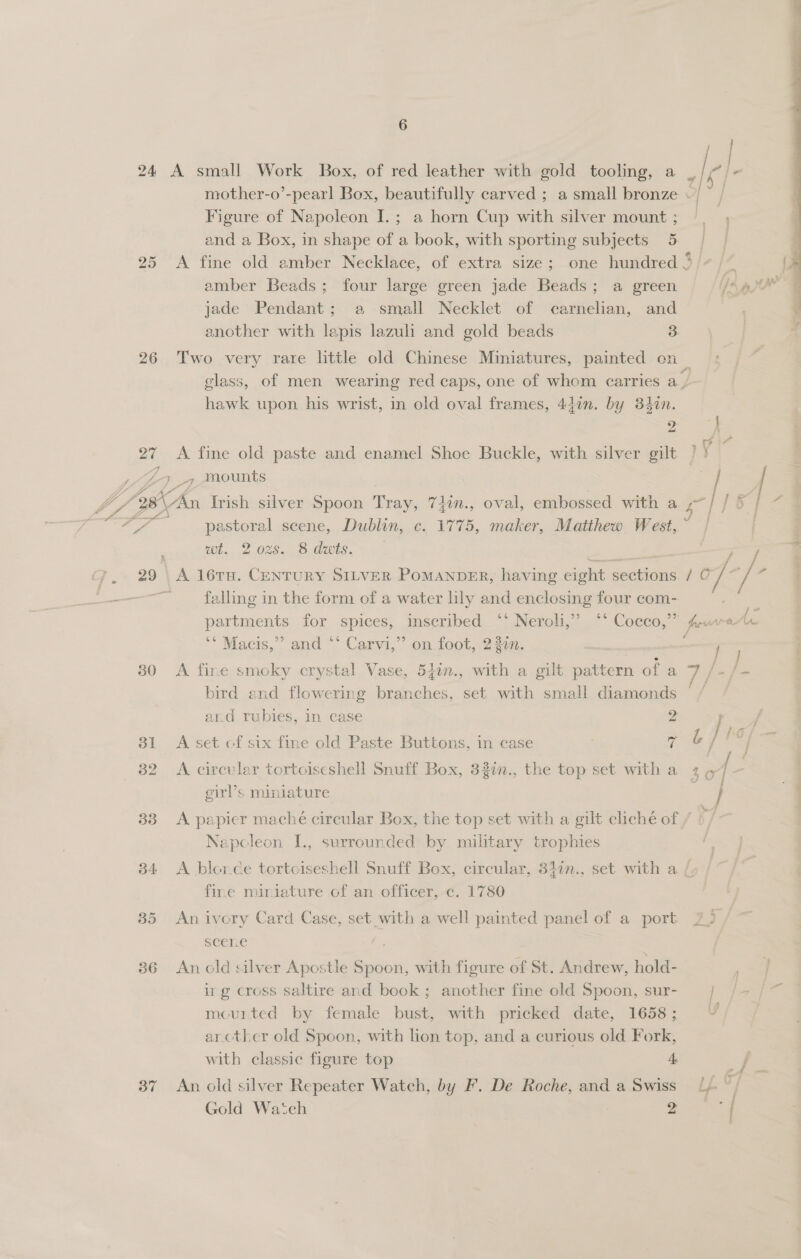 6
24 A small Work Box, of red leather with gold tooling, a
mother-o’-pearl Box, beautifully carved ; a small bronze
Figure of Napoleon I. ; a horn Cup with silver mount ;
and a Box, in shape of a book, with sporting subjects 5
25 A fine old amber Necklace, of extra size ; one hundred
amber Beads ; four large green jade Beads ; a green
jade Pendant ; a small Necklet of carnelian, and
another with lapis lazuli and gold beads 3
26 Two very rare little old Chinese Miniatures, painted on
glass, of men wearing red caps, one of whom carries a
hawk upon his wrist, in old oval frames, 4½in. by 3½in.
2
27 A fine old paste and enamel Shoe Buckle, with silver gilt
mounts
28 An Irish silver Spoon Tray, 7½in., oval, embossed with a
pastoral scene, Dublin, c. 1775, maker, Matthew West,
wt. 2 ozs. 8 dwts.
29 A 16TH. CENTURY SILVER POMANDER, having eight sections
falling in the form of a water lily and enclosing four com-
partments for spices, inscribed ‘‘ Neroli,’’ ‘‘ Cocco,’’
‘‘ Macis,’’ and ‘‘ Carvi,’’ on foot, 2¾in.
30 A fine smoky crystal Vase, 5½in., with a gilt pattern of a 7/-/-
bird and flowering branches, set with small diamonds
and rubies, in case 2
31 A set of six fine old Paste Buttons, in case 7 6/10/-
32 A circular tortoiseshell Snuff Box, 3¾in., the top set with a 30/-
girl’s miniature
33 A papier maché circular Box, the top set with a gilt cliché of
Napoleon I., surrounded by military trophies
34 A blonde tortoiseshell Snuff Box, circular, 3½in., set with a
fine miniature of an officer, c. 1780
35 An ivory Card Case, set with a well painted panel of a port
scene
36 An old silver Apostle Spoon, with figure of St. Andrew, hold-
ing cross saltire and book ; another fine old Spoon, sur-
mounted by female bust, with pricked date, 1658 ;
another old Spoon, with lion top, and a curious old Fork,
with classic figure top 4
37 An old silver Repeater Watch, by F. De Roche, and a Swiss
Gold Watch 2